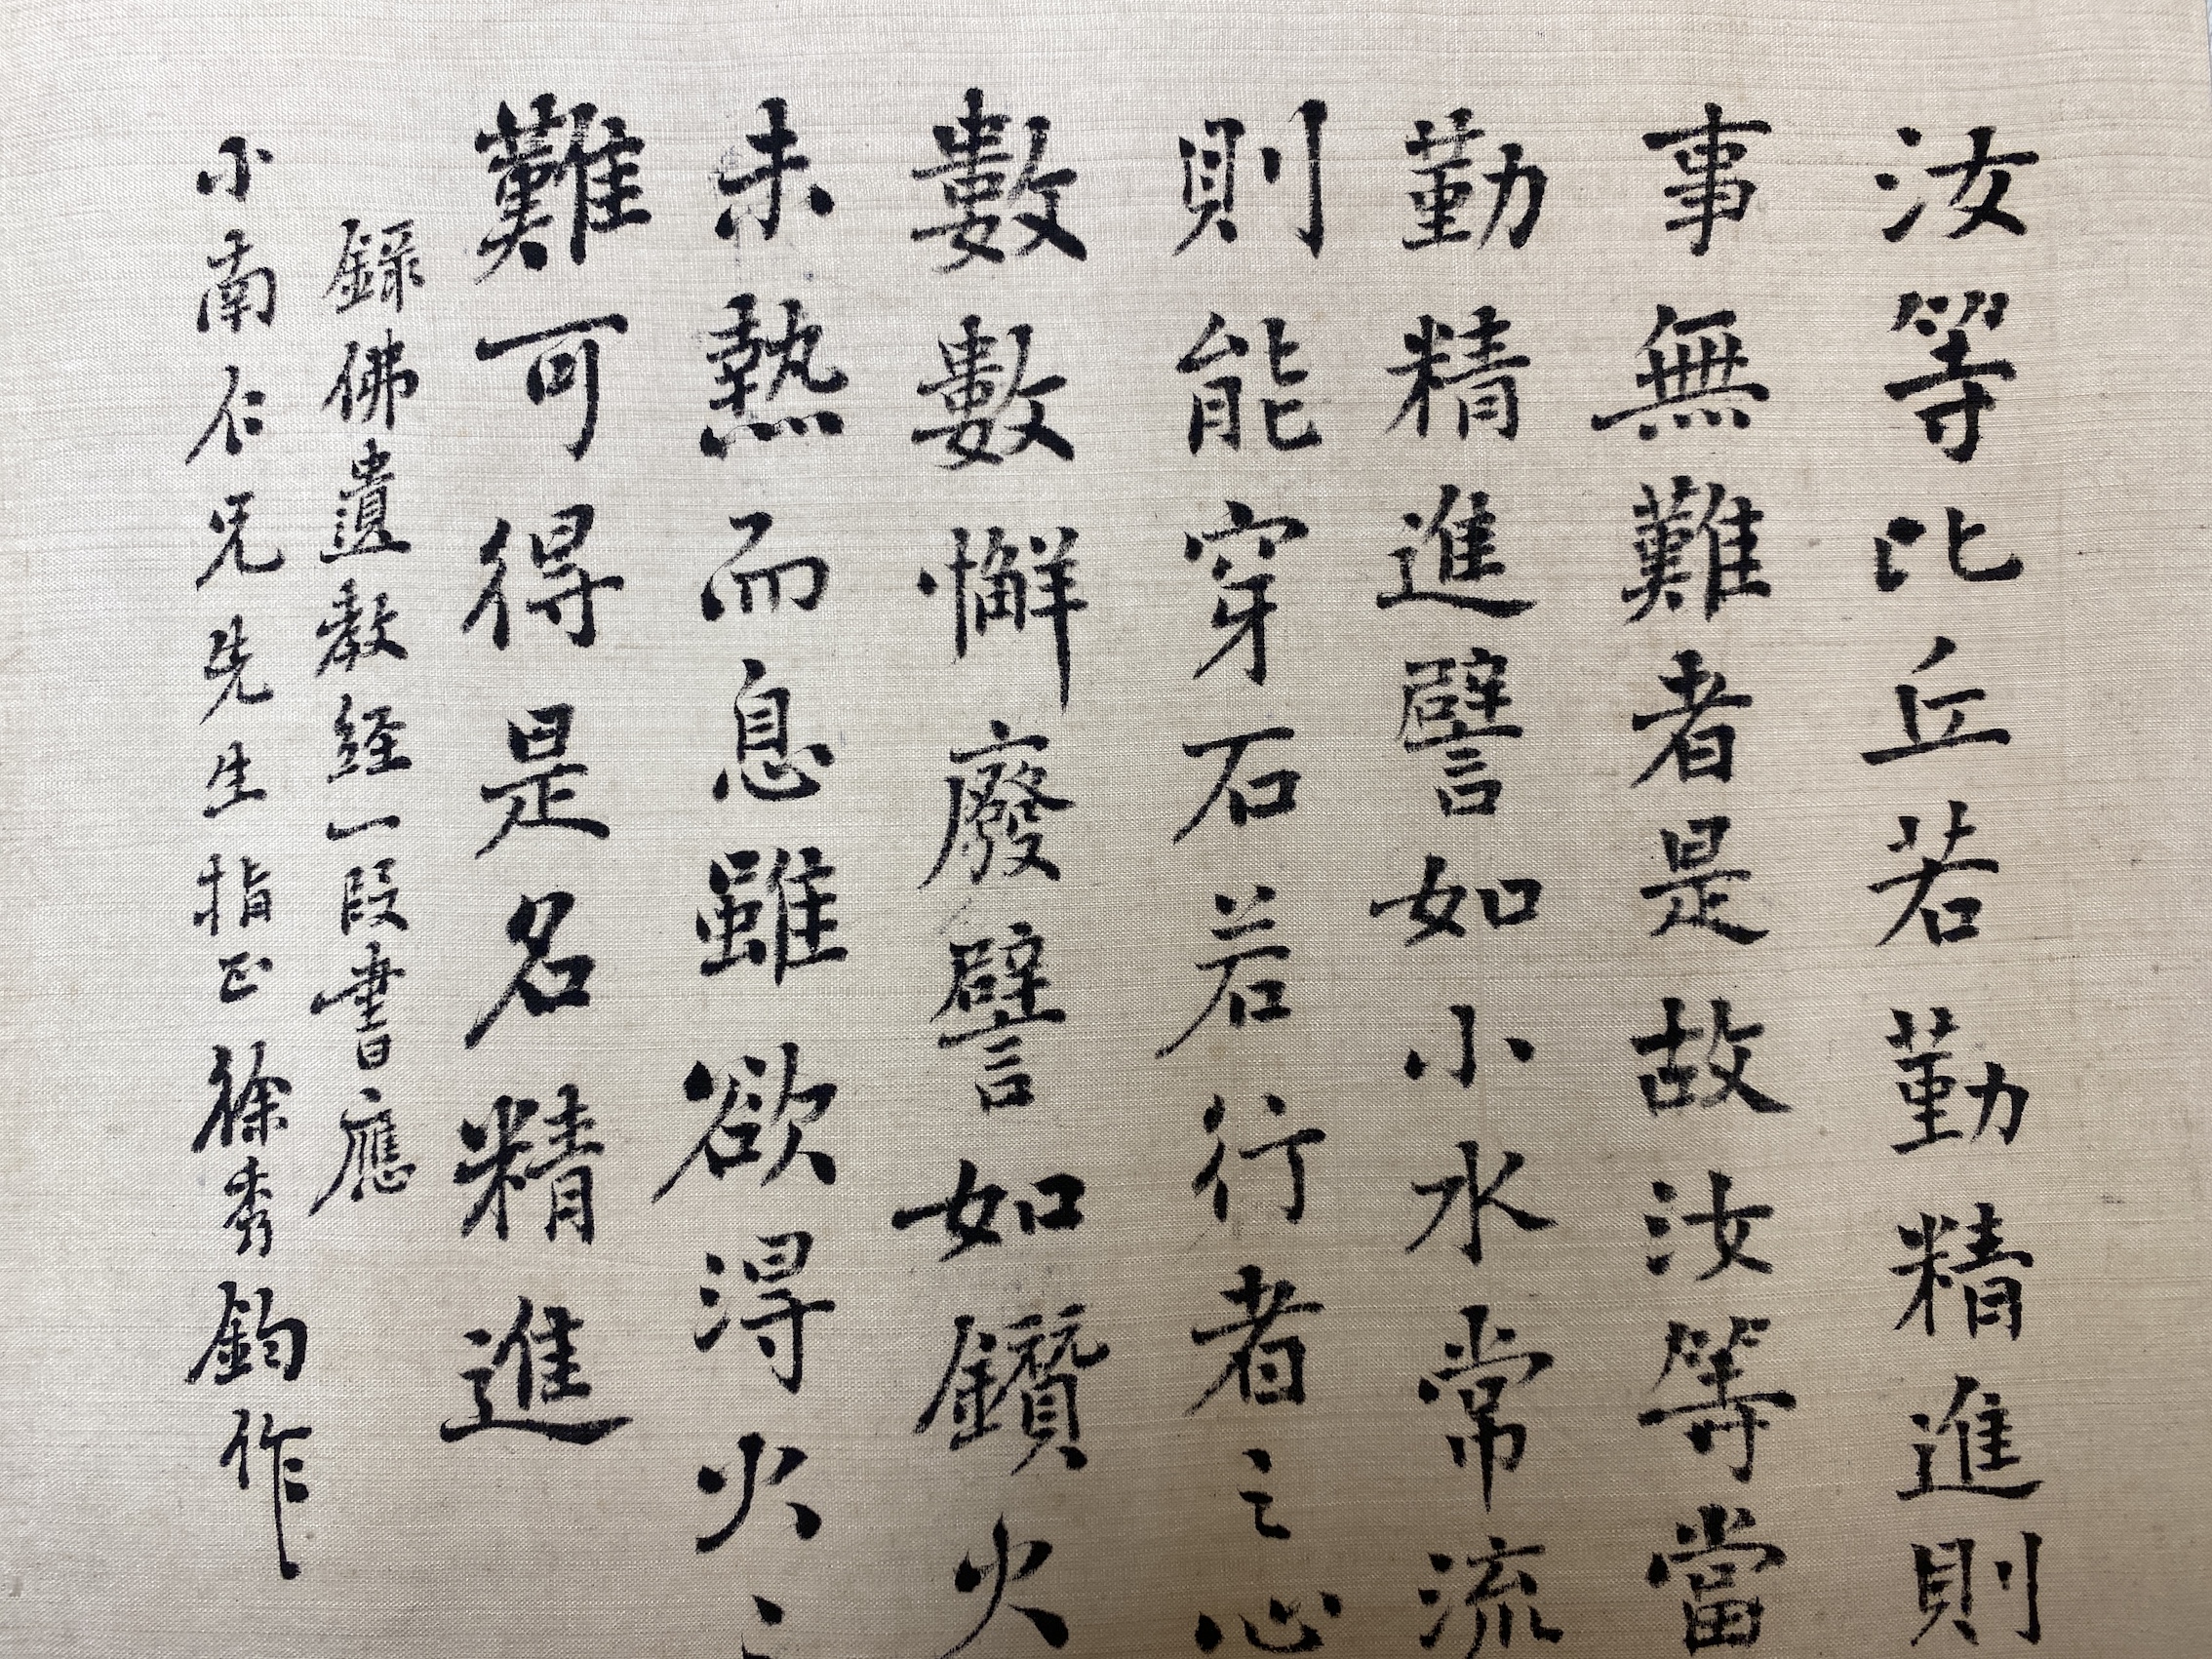 汝等比丘若勤精進則
事無難者是故汝等當
勤精進譬如小水常流
則能穿石若行者之心
數數懈廢譬如鑽火
未熱而息雖欲得火之
難可得是名精進
錄佛遺教經一段書應
小南仁兄先生指正徐秀鈞作